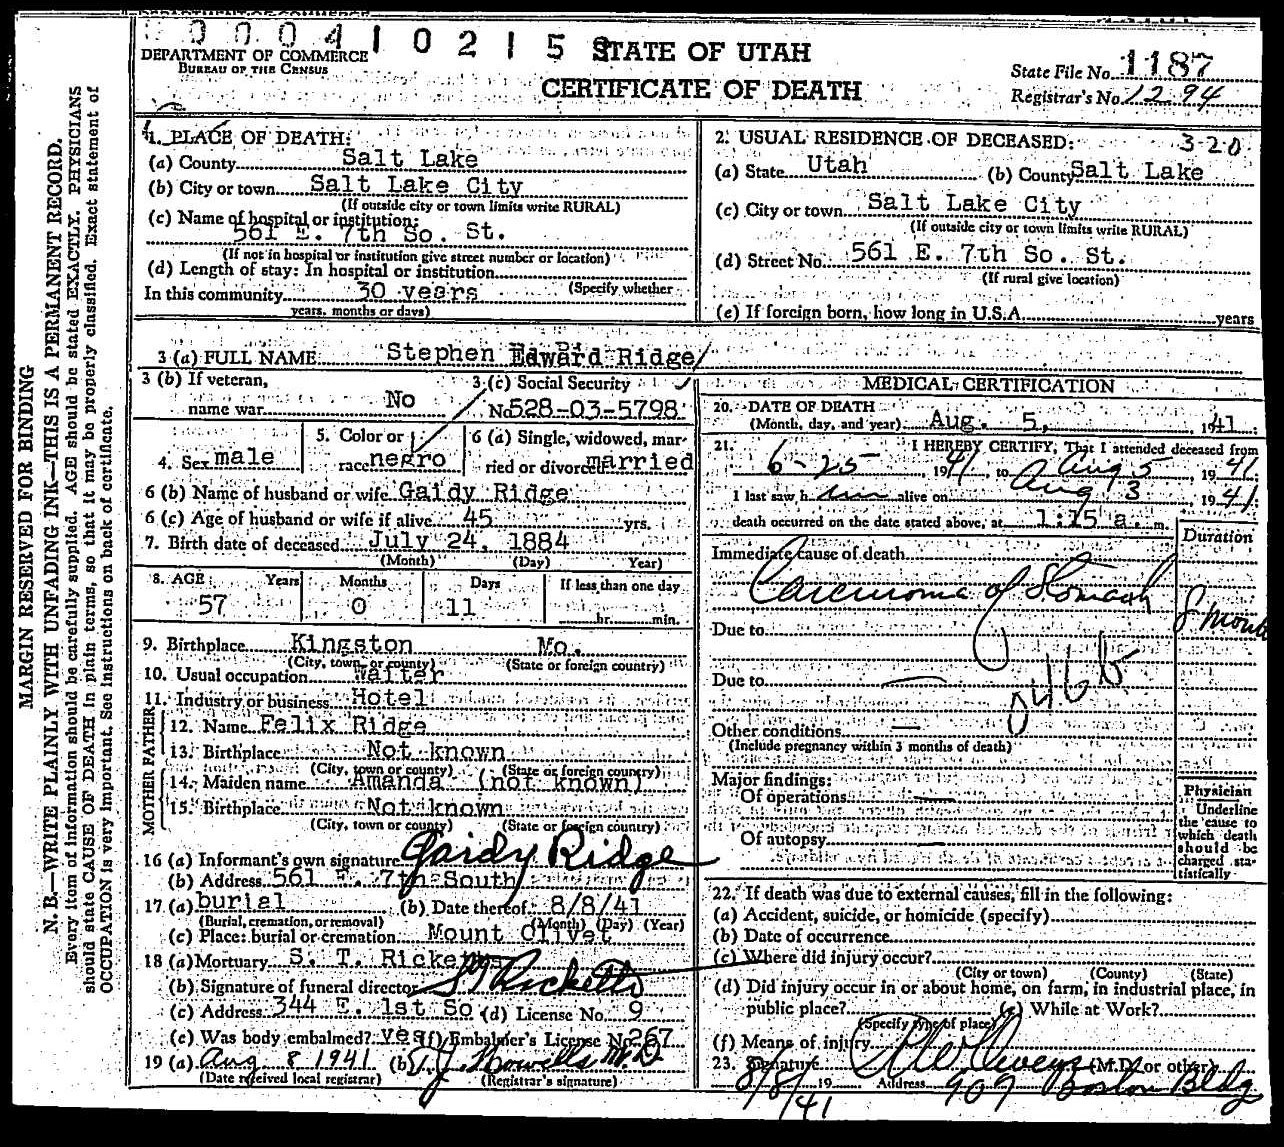 DEPARTMENT OF COMMERCE
00041021158
DEPARTMENT OF COMMERCE
BUREAU OF THE CENSUS
STATE OF UTAH
CERTIFICATE OF DEATH
State File No. 1187
Registrar's No. 1294
MARGIN RESERVED FOR BINDING
N. B.—WRITE PLAINLY WITH UNFADING INK—THIS IS A PERMANENT RECORD.
Every item of information should be carefully supplied. AGE should be stated EXACTLY. PHYSICIANS
should state CAUSE OF DEATH in plain terms, so that it may be properly classified. Exact statement of
OCCUPATION is very important. See instructions on back of certificate.
1. PLACE OF DEATH:
(a) County Salt Lake
(b) City or town Salt Lake City
(If outside city or town limits write RURAL)
(c) Name of hospital or institution:
561 E. 7th So. St.
(If not in hospital or institution give street number or location)
(d) Length of stay: In hospital or institution
(Specify whether
In this community 30 years
years, months or days)
2. USUAL RESIDENCE OF DECEASED: 3-20
(a) State Utah (b) County Salt Lake
(c) City or town Salt Lake City
(If outside city or town limits write RURAL)
(d) Street No. 561 E. 7th So. St.
(If rural give location)
(e) If foreign born, how long in U.S.A. years
3 (a) FULL NAME Stephen Edward Ridge
3 (b) If veteran,
name war No
3 (c) Social Security
No. 528-03-5798
4. Sex male
5. Color or
race negro
6 (a) Single, widowed, mar-
ried or divorced married
6 (b) Name of husband or wife Gaidy Ridge
6 (c) Age of husband or wife if alive 45 yrs.
7. Birth date of deceased July 24, 1884
(Month) (Day) Year)
8. AGE Years Months Days If less than one day
57 0 11 hr. min.
9. Birthplace Kingston Mo.
(City, town, or county) (State or foreign country)
10. Usual occupation Waiter
11. Industry or business Hotel
FATHER
12. Name Felix Ridge
13. Birthplace Not known
(City, town or county) (State or foreign country)
MOTHER
14. Maiden name Amanda (not known)
15. Birthplace Not known
(City, town or county) (State or foreign country)
16 (a) Informant's own signature Gaidy Ridge
(b) Address 561 E. 7th South
17 (a) burial (b) Date thereof 8/8/41
(Burial, cremation, or removal) (Month) (Day) (Year)
(c) Place: burial or cremation Mount Olivet
18 (a) Mortuary S. T. Ricketts
(b) Signature of funeral director S T Ricketts
(c) Address 344 E. 1st So (d) License No. 9
(e) Was body embalmed? yes (f) Embalmer's License No. 267
19 (a) Aug 8 1941 (b) T. J. Howells M.D.
(Date received local registrar) (Registrar's signature)
MEDICAL CERTIFICATION
20. DATE OF DEATH
(Month, day, and year) Aug. 5, 1941
21. I HEREBY CERTIFY, That I attended deceased from
6-25 1941 to Aug 5 1941
I last saw h im alive on Aug 3 1941
death occurred on the date stated above, at 1:15 a. m.
Duration
Immediate cause of death
Carcinoma of Stomach 8 month
Due to
046b
Due to
Other conditions
(Include pregnancy within 3 months of death)
Major findings:
Of operations
Of autopsy
Physician
Underline
the cause to
which death
should be
charged sta-
tistically
22. If death was due to external causes, fill in the following:
(a) Accident, suicide, or homicide (specify)
(b) Date of occurrence
(c) Where did injury occur?
(City or town) (County) (State)
(d) Did injury occur in or about home, on farm, in industrial place, in
public place? (e) While at Work?
(Specify type of place)
(f) Means of injury
23. Signature Owens (M.D. or other)
8/8/41 19 Address 907 Boston Bldg